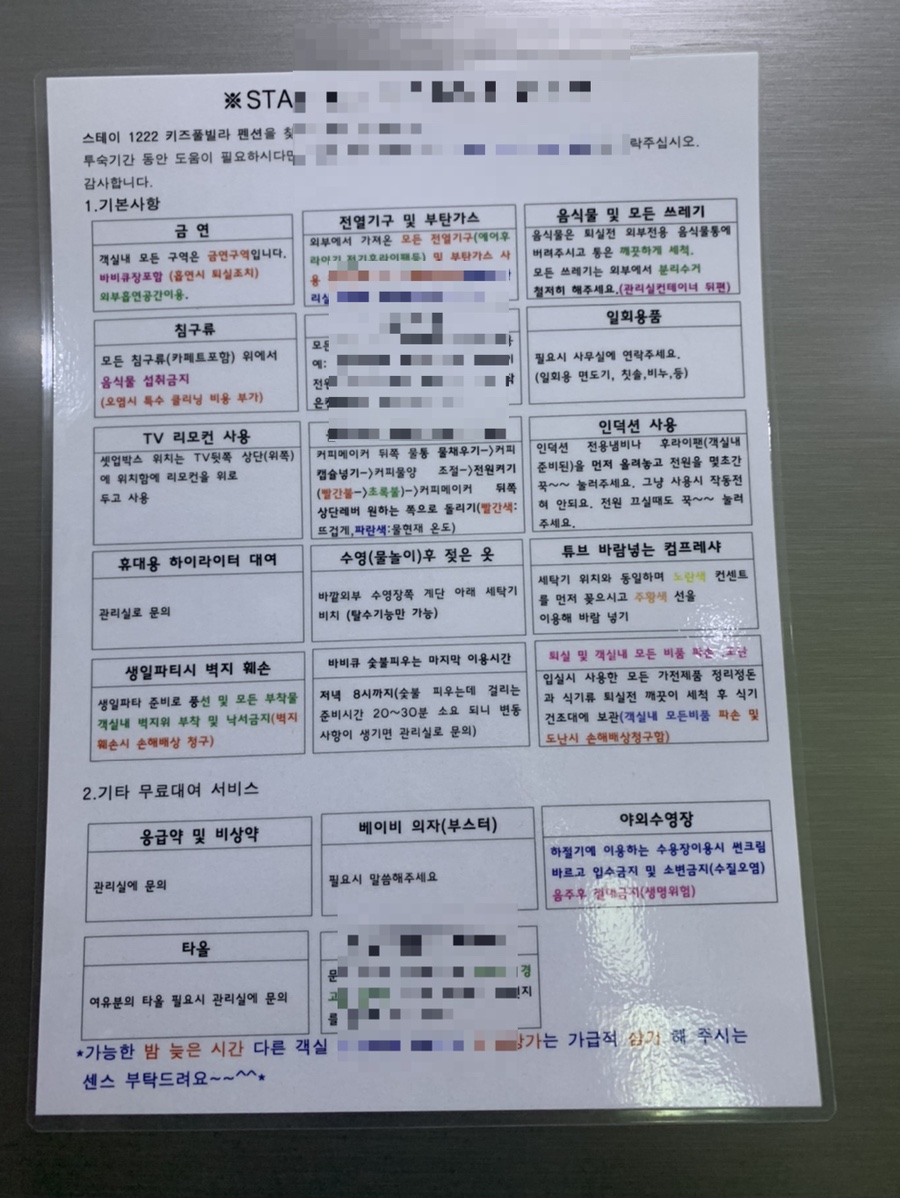 ※STA
스테이 1222 키즈풀빌라 펜션을
투숙기간 동안 도움이 필요하시다면
락주십시오.
감사합니다.
1.기본사항
금 연
객실내 모든 구역은 금연구역입니다.
바비큐장포함 (흡연시 퇴실조치)
외부흡연공간이용.
전열기구 및 부탄가스
외부에서 가져온 모든 전열기구(에어후
라이기,전기후라이팬등) 및 부탄가스 사
용
음식물 및 모든 쓰레기
음식물은 퇴실전 외부전용 음식물통에
버려주시고 통은 깨끗하게 세척.
모든 쓰레기는 외부에서 분리수거
철저히 해주세요.(관리실컨테이너 뒤편)
침구류
모든 침구류(카페트포함) 위에서
음식물 섭취금지
(오염시 특수 클리닝 비용 부가)
모든
예:
전원
일회용품
필요시 사무실에 연락주세요.
(일회용 면도기, 칫솔,비누,등)
TV 리모컨 사용
셋업박스 위치는 TV뒷쪽 상단(위쪽)
에 위치함에 리모컨을 위로
두고 사용
커피메이커 뒤쪽 물통 물채우기->커피
캡슐넣기->커피물양 조절->전원켜기
(빨간불->초록불)->커피메이커 뒤쪽
상단레버 원하는 쪽으로 돌리기(빨간색:
뜨겁게,파란색:물현재 온도)
인덕션 사용
인덕션 전용냄비나 후라이팬(객실내
준비된)을 먼저 올려놓고 전원을 몇초간
꾹~~ 눌러주세요. 그냥 사용시 작동전
혀 안되요. 전원 끄실때도 꾹~~ 눌러
주세요.
휴대용 하이라이터 대여
관리실로 문의
수영(물놀이)후 젖은 옷
바깥외부 수영장쪽 계단 아래 세탁기
비치 (탈수기능만 가능)
튜브 바람넣는 컴프레샤
세탁기 위치와 동일하며 노란색 컨센트
를 먼저 꽂으시고 주황색 선을
이용해 바람 넣기
생일파티시 벽지 훼손
생일파타 준비로 풍선 및 모든 부착물
객실내 벽지위 부착 및 낙서금지(벽지
훼손시 손해배상 청구)
바비큐 숯불피우는 마지막 이용시간
저녁 8시까지(숯불 피우는데 걸리는
준비시간 20~30분 소요 되니 변동
사항이 생기면 관리실로 문의)
퇴실 및 객실내 모든 비품 파손 .도난
입실시 사용한 모든 가전제품 정리정돈
과 식기류 퇴실전 깨끗이 세척 후 식기
건조대에 보관(객실내 모든비품 파손 및
도난시 손해배상청구함)
2.기타 무료대여 서비스
응급약 및 비상약
관리실에 문의
베이비 의자(부스터)
필요시 말씀해주세요
야외수영장
하절기에 이용하는 수용장이용시 썬크림
바르고 입수금지 및 소변금지(수질오염)
음주후 절대금지(생명위험)
타올
여유분의 타올 필요시 관리실에 문의
*가능한 밤 늦은 시간 다른 객실
는 가급적 삼가 해 주시는
센스 부탁드려요~~^^*